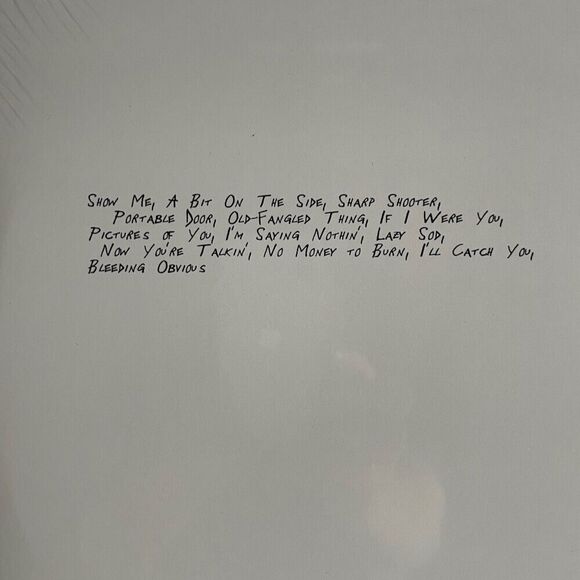 Show Me, A Bit On The Side, Sharp Shooter,
Portable Door, Old-Fangled Thing, If I Were You,
Pictures of You, I'm Saying Nothin', Lazy Sod,
Now You're Talkin', No Money to Burn, I'll Catch You,
Bleeding Obvious